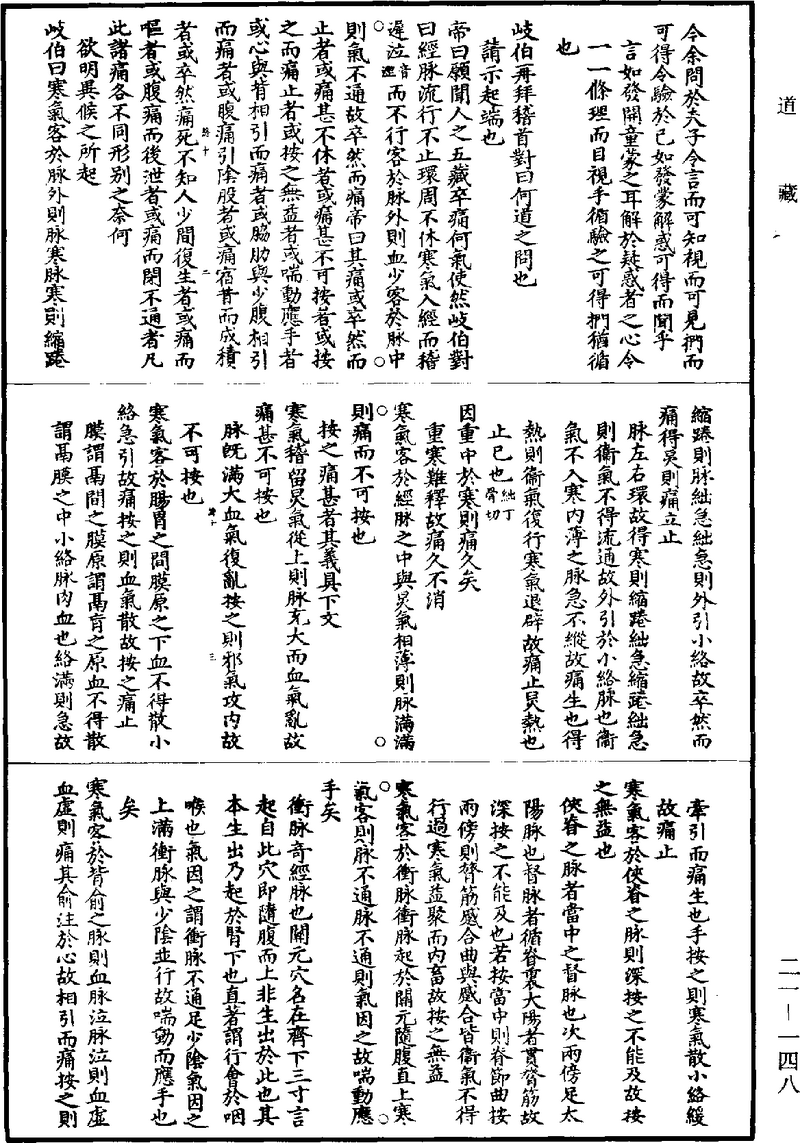 道藏
令余問於夫子令言而可知視而可見捫而
可得令驗於已如發蒙解惑可得而聞乎
言如發開童蒙之耳解於疑惑者之心令
一一條理而目視手循驗之可得捫猶循
也
岐伯再拜稽首對曰何道之問也
請示起端也
帝曰願聞人之五藏卒痛何氣使然岐伯對
曰經脉流行不止環周不休寒氣入經而稽
遲泣音澀而不行客於脉外則血少客於脉中
則氣不通故卒然而痛帝曰其痛或卒然而
止者或痛甚不休者或痛甚不可按者或按
之而痛止者或按之無益者或喘動應手者
或心與背相引而痛者或脇肋與少腹相引
而痛者或腹痛引陰股者或痛宿昔而成積
者或卒然痛死不知人少間復生者或痛而
嘔者或腹痛而後泄者或痛而閉不通者凡
此諸痛各不同形别之奈何
欲明異候之所起
岐伯曰寒氣客於脉外則脉寒脉寒則縮踡
縮踡則脉絀急絀急則外引小絡故卒然而
痛得炅則痛立止
脉左右環故得寒則縮踡絀急縮踡絀急
則衞氣不得流通故外引於小絡脉也衞
氣不入寒内薄之脉急不縱故痛生也得
熱則衞氣復行寒氣退辟故痛止炅熱也
止已也絀丁骨切
因重中於寒則痛久矣
重寒難釋故痛久不消
寒氣客於經脉之中與炅氣相薄則脉滿滿
則痛而不可按也
按之痛甚者其義具下文
寒氣稽留炅氣從上則脉充大而血氣亂故
痛甚不可按也
脉旣滿大血氣復亂按之則邪氣攻内故
不可按也
寒氣客於腸胃之間膜原之下血不得散小
絡急引故痛按之則血氣散故按之痛止
膜謂鬲間之膜原謂鬲肓之原血不得散
謂鬲膜之中小絡脉内血也絡滿則急故
牽引而痛生也手按之則寒氣散小絡緩
故痛止
寒氣客於俠脊之脉則深按之不能及故按
之無益也
俠脊之脉者當中之督脉也次兩傍足太
陽脉也督脉者循脊裏太陽者貫膂筋故
深按之不能及也若按當中則脊節曲按
兩傍則膂筋蹙合曲與蹙合皆衞氣不得
行過寒氣益聚而内畜故按之無益
寒氣客於衝脉衝脉起於關元隨腹直上寒
氣客則脉不通脉不通則氣因之故喘動應
手矣
衝脉奇經脉也關元穴名在齊下三寸言
起自此穴即隨腹而上非生出於此也其
本生出乃起於腎下也直者謂行會於咽
喉也氣因之謂衝脉不通足少陰氣因之
上滿衝脉與少陰並行故喘動而應手也
矣
寒氣客於背俞之脉則血脉泣脉泣則血虛
血虛則痛其俞注於心故相引而痛按之則
二一—一四八